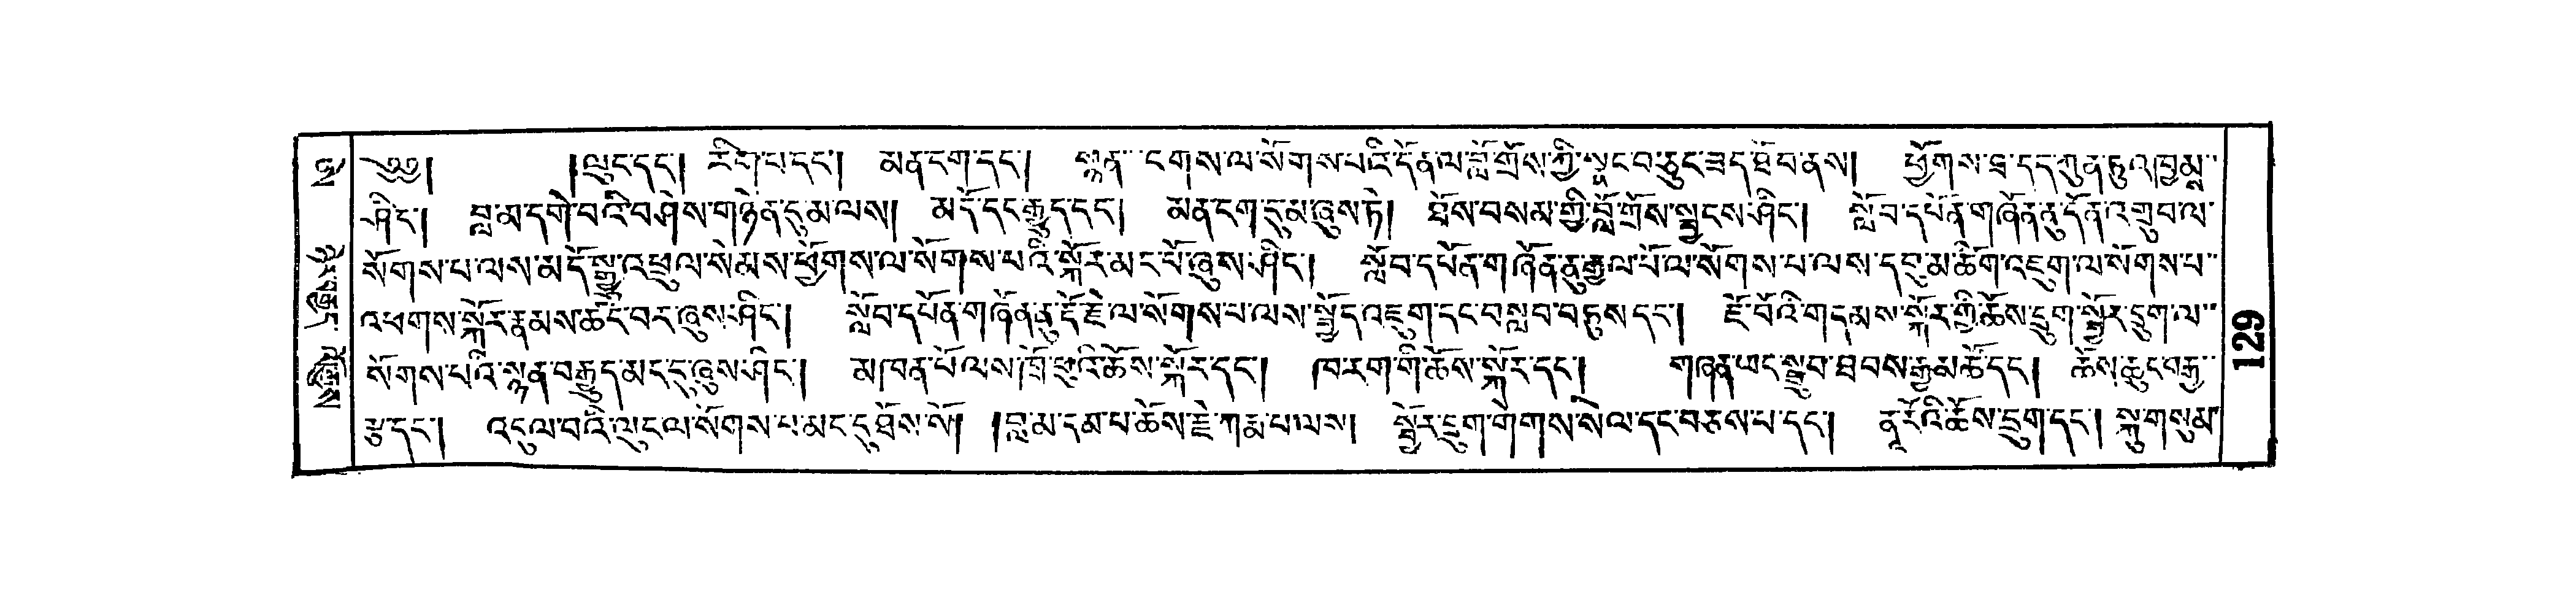 ༄༅། །ལུང་དང་། རིག་པ་དང་། མན་ངག་དང་། སྙན་ངགས་ལ་སོགས་པའི་དོན་ལ་བློ་གྲོས་ཀྱི་སྣང་བ་ཅུང་ཟད་ཐོབ་ནས། ཕྱོགས་བྲ་དང་ཀུན་ཏུའ་ཁྱམྶ
ཤིང་། བླ་མ་དགེ་བའི་བཤེས་གཉེན་དུ་མ་ལས། མདོ་དང་རྒྱུད་དང་། མན་ངག་དུ་མ་ཞུས་ཏེ། ཐོས་བསམ་གྱི་བློ་གྲོས་སྦྱངས་ཤིང་། སློབ་དཔོན་གཞོན་ནུ་དོན་འགྲུབ་ལ་
སོགས་པ་ལས་མདོ་སྒྱུ་འཕྲུལ་སེམས་ཕྱོགས་ལ་སོགས་པའི་སྐོར་མང་པོ་ཞུས་ཤིང་། སློབ་དཔོན་གཞོན་ནུ་རྒྱལ་པོ་ལ་སོགས་པ་ལས་དབུ་མ་ཚིག་འཇུག་ལ་སོགས་པ
འཕགས་སྐོར་རྣམས་ཚང་བར་ཞུས་ཤིང་། སློབ་དཔོན་གཞོན་ནུ་རྡོ་རྗེ་ལ་སོགས་པ་ལས་སྤྱོད་འཇུག་དང་བསླབ་བཏུས་དང་། ཇོ་བོའི་གདམས་སྐོར་གྱི་ཆོས་དྲུག་སྦྱོར་དྲུག་ལ
སོགས་པའི་སྙན་བརྒྱུད་མང་དུ་ཞུས་ཤིང་། མཁན་པོ་ལས་ཁྲོ་ཕུའི་ཆོས་སྐོར་དང་། ཁ་རག་གི་ཆོས་སྐོར་དང་། གཞན་ཡང་སྒྲུབ་ཐབས་རྒྱ་མཚོ་དང་། ཆོས་ཆུང་བརྒྱ
རྩ་དང་། འདུལ་བའི་ལུང་ལ་སོགས་པ་མང་དུ་ཐོས་སོ། །བླ་མ་དམ་པ་ཆོས་རྗེ་ཀརྨ་པ་ལས། སྦྱོར་དྲུག་གེགས་སེལ་དང་བཅས་པ་དང་། ནཱ་རོའི་ཆོས་དྲུག་དང་། སྐུ་གསུམ
129